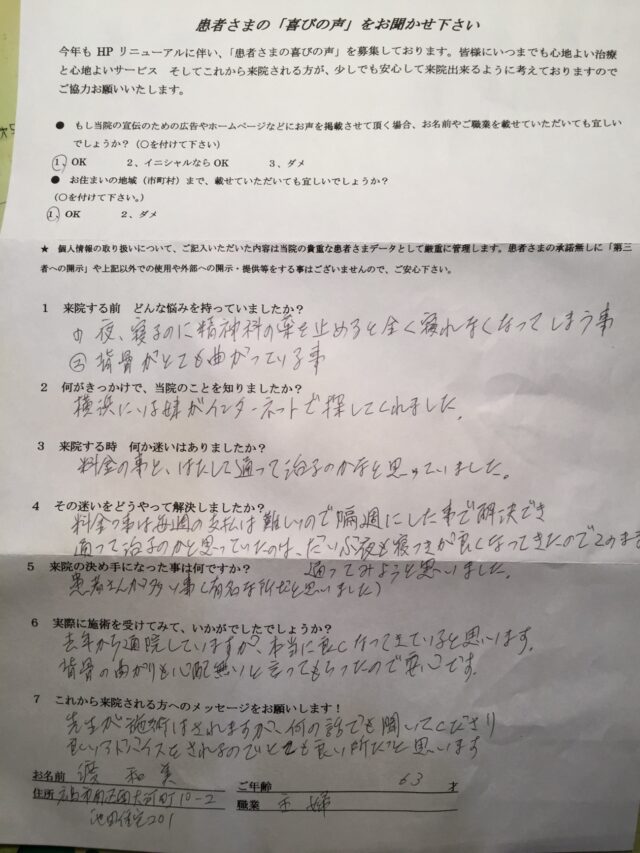 患者さまの「喜びの声」をお聞かせ下さい
今年も HP リニューアルに伴い、「患者さまの喜びの声」を募集しております。皆様にいつまでも心地よい治療
と心地よいサービス　そしてこれから来院される方が、少しでも安心して来院出来るように考えておりますので
ご協力お願いいたします。
● もし当院の宣伝のための広告やホームページなどにお声を掲載させて頂く場合、お名前やご職業を載せていただいても宜しい
でしょうか？（○を付けて下さい）
1、OK　2、イニシャルなら OK　3、ダメ
● お住まいの地域（市町村）まで、載せていただいても宜しいでしょうか？
（○を付けて下さい。）
1、OK　2、ダメ
★ 個人情報の取り扱いについて、ご記入いただいた内容は当院の貴重な患者さまデータとして厳重に管理します。患者さまの承諾無しに「第三
者への開示」や上記以外での使用や外部への開示・提供等をする事はございませんので、ご安心下さい。
1　来院する前　どんな悩みを持っていましたか？
① 夜、寝るのに精神科の薬を止めると全く寝れなくなってしまう事
② 背骨がとても曲がっている事
2　何がきっかけで、当院のことを知りましたか？
横浜にいる妹がインターネットで探してくれました。
3　来院する時　何か迷いはありましたか？
料金の事と、はたして通って治るのかなと思っていました。
4　その迷いをどうやって解決しましたか？
料金の事は毎週の支払は難しいので隔週にした事で解決でき
通って治るのかと思っていたのは、だいぶ夜も寝つきが良くなってきたのでこのまま
通ってみようと思いました。
5　来院の決め手になった事は何ですか？
患者さんが多い事（有名な所だと思いました）
6　実際に施術を受けてみて、いかがでしたでしょうか？
去年から通院していますが、本当に良くなってきていると思います。
背骨の曲がりも心配無いと言ってもらったので安心です。
7　これから来院される方へのメッセージをお願いします！
先生が施術はされますが、何の話でも聞いてくださり
良いアドバイスをされるのでとても良い所だと思います
お名前　和美
ご年齢　63　才
住所　広島市南区大河町10-2
職業　主婦
201